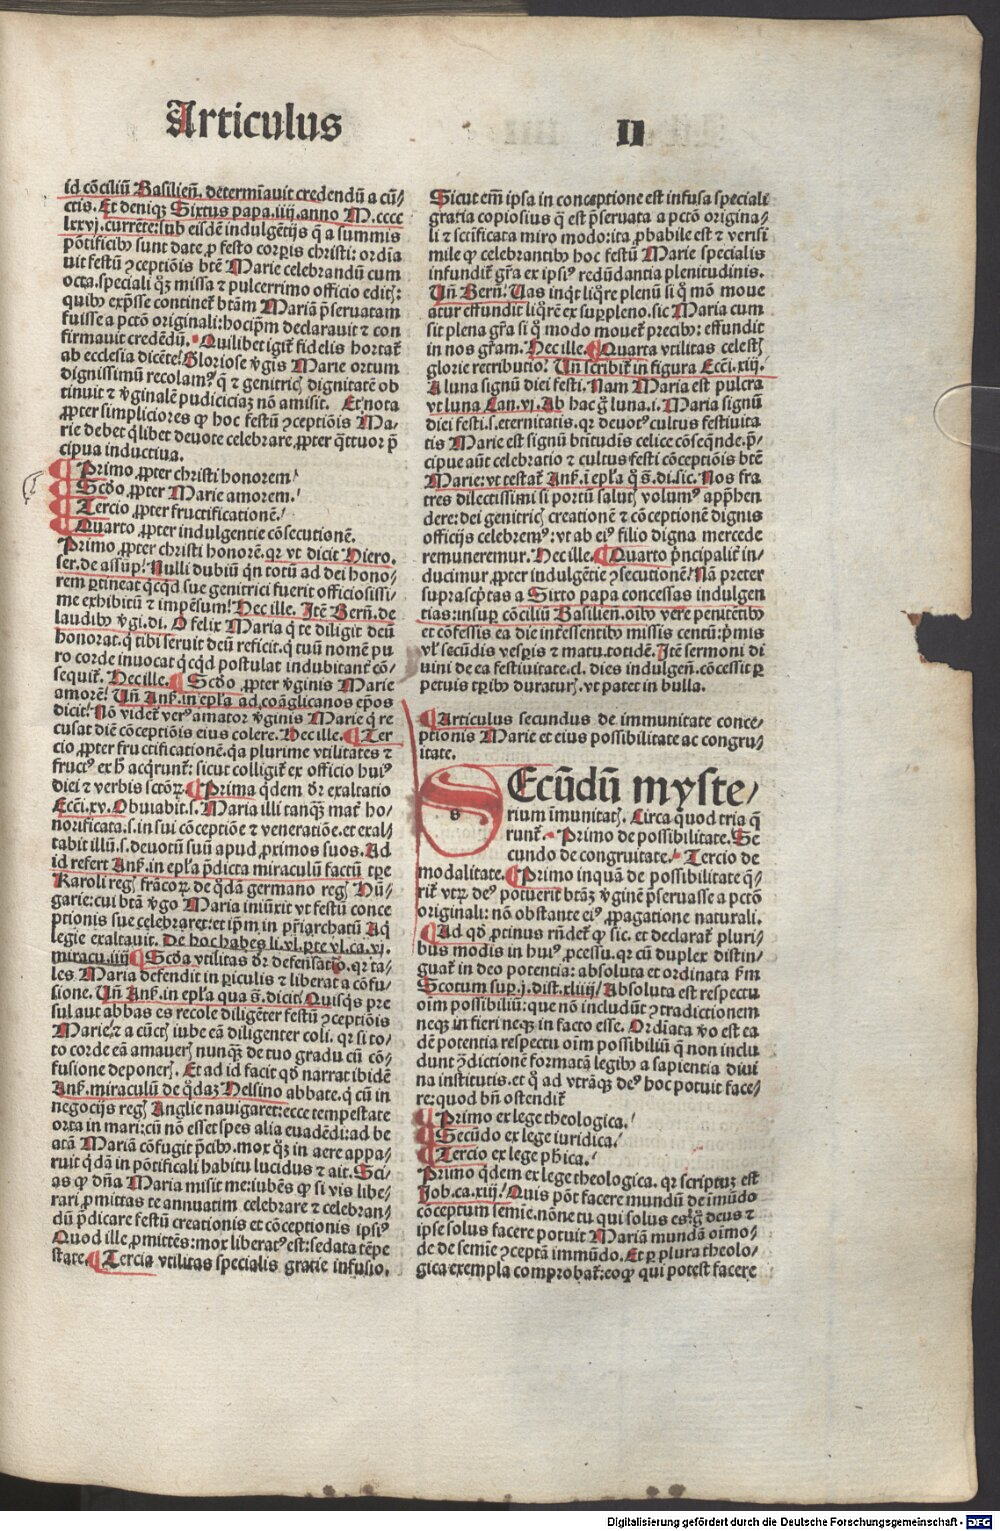 Articulus
II
id cōciliū Basilieñ. determīauit credendū a cū/
ctis. Et deniqꝫ Sixtus papa .iiij. anno M.cccc
lxxvj. currēte: sub eisdē indulgētijs q̄ a summis
pōtificibꝰ sunt date ꝓ festo corꝑis christi: ordīa
uit festū ꝯceptiōis btē Marie celebrandū cum
octa. speciali qꝫ missa ⁊ pulcerrimo officio editꝭ:
quibꝰ exp̄sse continet̄ btām Mariā p̄seruatam
fuisse a pctō originali: hocip̄m declarauit ⁊ con
firmauit credēdū. Quilibet igit̄ fidelis hortat̄
ab ecclesia dicēte/ Gloriose v̄gis Marie ortum
dignissimū recolamꝰ q̄ ⁊ genitricꝭ dignitatē ob
tinuit ⁊ v̄ginalē pudiciciaꝫ nō amisit. Et nota
ꝓpter simpliciores ꝙ hoc festū ꝯceptiōis Ma-
rie debet q̄libet deuote celebrare ꝓpter q̄ttuor p̄
cipua inductiua.
¶ Primo ꝓpter christi honorem/
¶ Scd̄o ꝓpter Marie amorem./
¶ Tercio ꝓpter fructificationē./
¶ Quarto ꝓpter indulgentie cōsecutionē.
Primo ꝓpter christi honorē. qꝛ vt dicit Hiero.
ser. de assūp./ Nulli dubiū qn̄ totū ad dei hono/
rem ꝑtineat qͥcqͥd sue genitrici fuerit officiosissi/
me exhibitū ⁊ impēsum/ Hec ille. Itē Berñ. de
laudibꝰ v̄gi. di. O felix Maria q̄ te diligit deū
honorat. q̄ tibi seruit deū reficit. q̄ tuū nomē pu
ro corde inuocat qͥcqͥd postulat indubitant̄ cō/
sequit̄. Hec ille. ¶ Scd̄o ꝓpter v̄ginis Marie
amorē/ Uñ Anẜ. in epl̄a ad coāglicanos ep̄os
dicit/ Nō videt̄ verꝰ amator v̄ginis Marie q̄ re
cusat diē cōceptiōis eius colere. Hec ille. ¶ Ter
cio ꝓpter fructificationē. q̄a plurime vtilitates ⁊
fructꝰ ex h̄ acq̄runt̄: sicut colligit̄ ex officio huiꝰ
diei ⁊ verbis sctōꝝ. ¶ Prima q̄dem dr̄ exaltatio
Ecci. xv. Obuiabit .s. Maria illi tanqꝫ mat̄ ho/
norificata .s. in sui cōceptiōe ⁊ veneratiōe. et exal/
tabit illū .s. deuotū suū apud ꝓximos suos. Ad
id refert Anẜ. in epl̄a p̄dicta miraculū factū tꝑe
Karoli regꝭ frācoꝝ de q̄dā germano regꝭ Hū/
garie: cui btā v̄go Maria iniūxit vt festū conce
ptionis sue celebraret: et ip̄m in pr̄iarchatū Aq
legie exaltauit. De hoc habes li. vl. ꝑte vl. ca. vj.
miracu. iiij ¶ Scd̄a vtilitas dr̄ defensatio. qꝛ ta/
les Maria defendit in ꝑiculis ⁊ liberat a cōfu/
sione. Uñ Anẜ. in epl̄a qua s̄. dicit/ Quisqͥs pre
sul aut abbas es recole diligēter festū ꝯceptiōis
Marie/ ⁊ a cūctꝭ iube eā diligenter coli. qꝛ si to/
to corde eā amauerꝭ nunqꝫ de tuo gradu cū cō/
fusione deponerꝭ. Et ad id facit qd̄ narrat ibidē
Anẜ. miraculū de q̄daꝫ Helsino abbate. q̄ cū in
negocijs regꝭ Anglie nauigaret: ecce tempestate
orta in mari: cū nō esset spes alia euadēdi: ad be
atā Mariā cōfugit p̄cibꝰ. mox qꝫ in aere appa/
ruit q̄dā in pōtificali habitu lucidus ⁊ ait. Sci/
as ꝙ dn̄a Maria misit me: iubēs ꝙ si vis libe/
rari ꝓmittas te annuatim celebrare ⁊ celebran/
dū p̄dicare festū creationis et cōceptionis ipsiꝰ
Quod ille ꝓmittēs: mox liberatꝰ est: sedata tēpe
state. ¶ Tercia vtilitas specialis gratie infusio.
Sicut em̄ ipsa in conceptione est infusa speciali
gratia copiosius q̄ est p̄seruata a pctō origina/
li ⁊ sctificata miro modo: ita ꝓbabile est ⁊ verisi
mile ꝙ celebrantibꝰ hoc festū Marie specialis
infundit̄ gr̄a ex ipsiꝰ redūdantia plenitudinis.
Uñ Berñ. Uas inqͥt liq̄re plenū si q̄ mō moue
atur effundit liq̄rē ex suꝑpleno. sic Maria cum
sit plena gr̄a si q̄ modo mouet̄ precibꝰ: effundit
in nos gr̄am. Hec ille. ¶ Quarta vtilitas celestꝭ
glorie retributio. Uñ scribit̄ in figura Ecci. xliij.
A luna signū diei festi. Nam Maria est pulcra
vt luna Can. vj. Ab hac g̊ luna .i. Maria signū
diei festi .s. eternitatis. qꝛ deuotꝰ cultus festiuita
tis Marie est signū btītudis celice cōseq̄nde. p̄/
cipue aūt celebratio ⁊ cultus festi cōceptiōis btē
Marie: vt testat̄ Anẜ. ī epl̄a q̄ s̄. di. sic. Nos fra
tres dilectissimi si portū salutꝭ volumꝰ app̄hen
dere: dei genitricꝭ creationē ⁊ cōceptionē dignis
officijs celebremꝰ: vt ab eiꝰ filio digna mercede
remuneremur. Hec ille. ¶ Quarto p̄ncipalit̄ in/
ducimur ꝓpter indulgētie ꝯsecutionē/ Nā preter
suprascp̄tas a Sixto papa concessas indulgen
tias: insuꝑ cōciliū Basilieñ. oībꝰ vere penitētibꝰ
et cōfessis ea die int̄essentibꝰ missis centū: p̄mis
vl̄ secūdis vesꝑis ⁊ matu. totidē. Itē sermoni di
uini de ea festiuitate. cl. dies indulgeñ. cōcessit ꝑ
petuis tꝑibꝰ duraturꝭ. vt patet in bulla.
¶ Articulus secundus de immunitate conce/
ptionis Marie et eius possibilitate ac congru/
itate.
SEcūdū myste/
rium īmunitatꝭ. Circa quod tria q̄
runt̄. Primo de possibilitate. Se
cundo de congruitate. Tercio de
modalitate. ¶ Primo inquā de possibilitate q̄/
rit̄ vtꝝ deꝰ potuerit btāꝫ v̄ginē p̄seruasse a pctō
originali: nō obstante eiꝰ ꝓpagatione naturali.
¶ Ad qd̄ ꝓtinus rn̄det̄ ꝙ sic. et declarat̄ pluri/
bus modis in huiꝰ ꝓcessu. qꝛ cū duplex distin/
guat̄ in deo potentia: absoluta et ordinata ẜm
Scotum suꝑ .j. dist. xliiij/ Absoluta est respectu
oīm possibiliū: que nō includūt ꝯtradictionem
neqꝫ in fieri neqꝫ in facto esse. Ordīata v̄o est ea
dē potentia respectu oīm possibiliū q̄ non inclu
dunt ꝯ̄dictionē formatā legibꝰ a sapientia diui
na institutis. et q̄ ad vtrāqꝫ deꝰ hoc potuit face/
re: quod bn̄ ostendit̄
¶ Primo ex lege theologica./
¶ Secūdo ex lege iuridica./
¶ Tercio ex lege ph̄ica./
Primo q̄dem ex lege theologica. qꝛ scriptuꝫ est
Job. ca. xiiij/ Quis pōt facere mundū de īmūdo
cōceptum semīe. nōne tu qui solus es/ g̊ deus ⁊
ipse solus facere potuit Mariā mundā oīmo/
de de semīe ꝯceptā immūdo. Et ꝑ plura theolo/
gica exempla comprobat̄: eo ꝙ qui potest facere
Digitalisierung gefördert durch die Deutsche Forschungsgemeinschaft - DFG